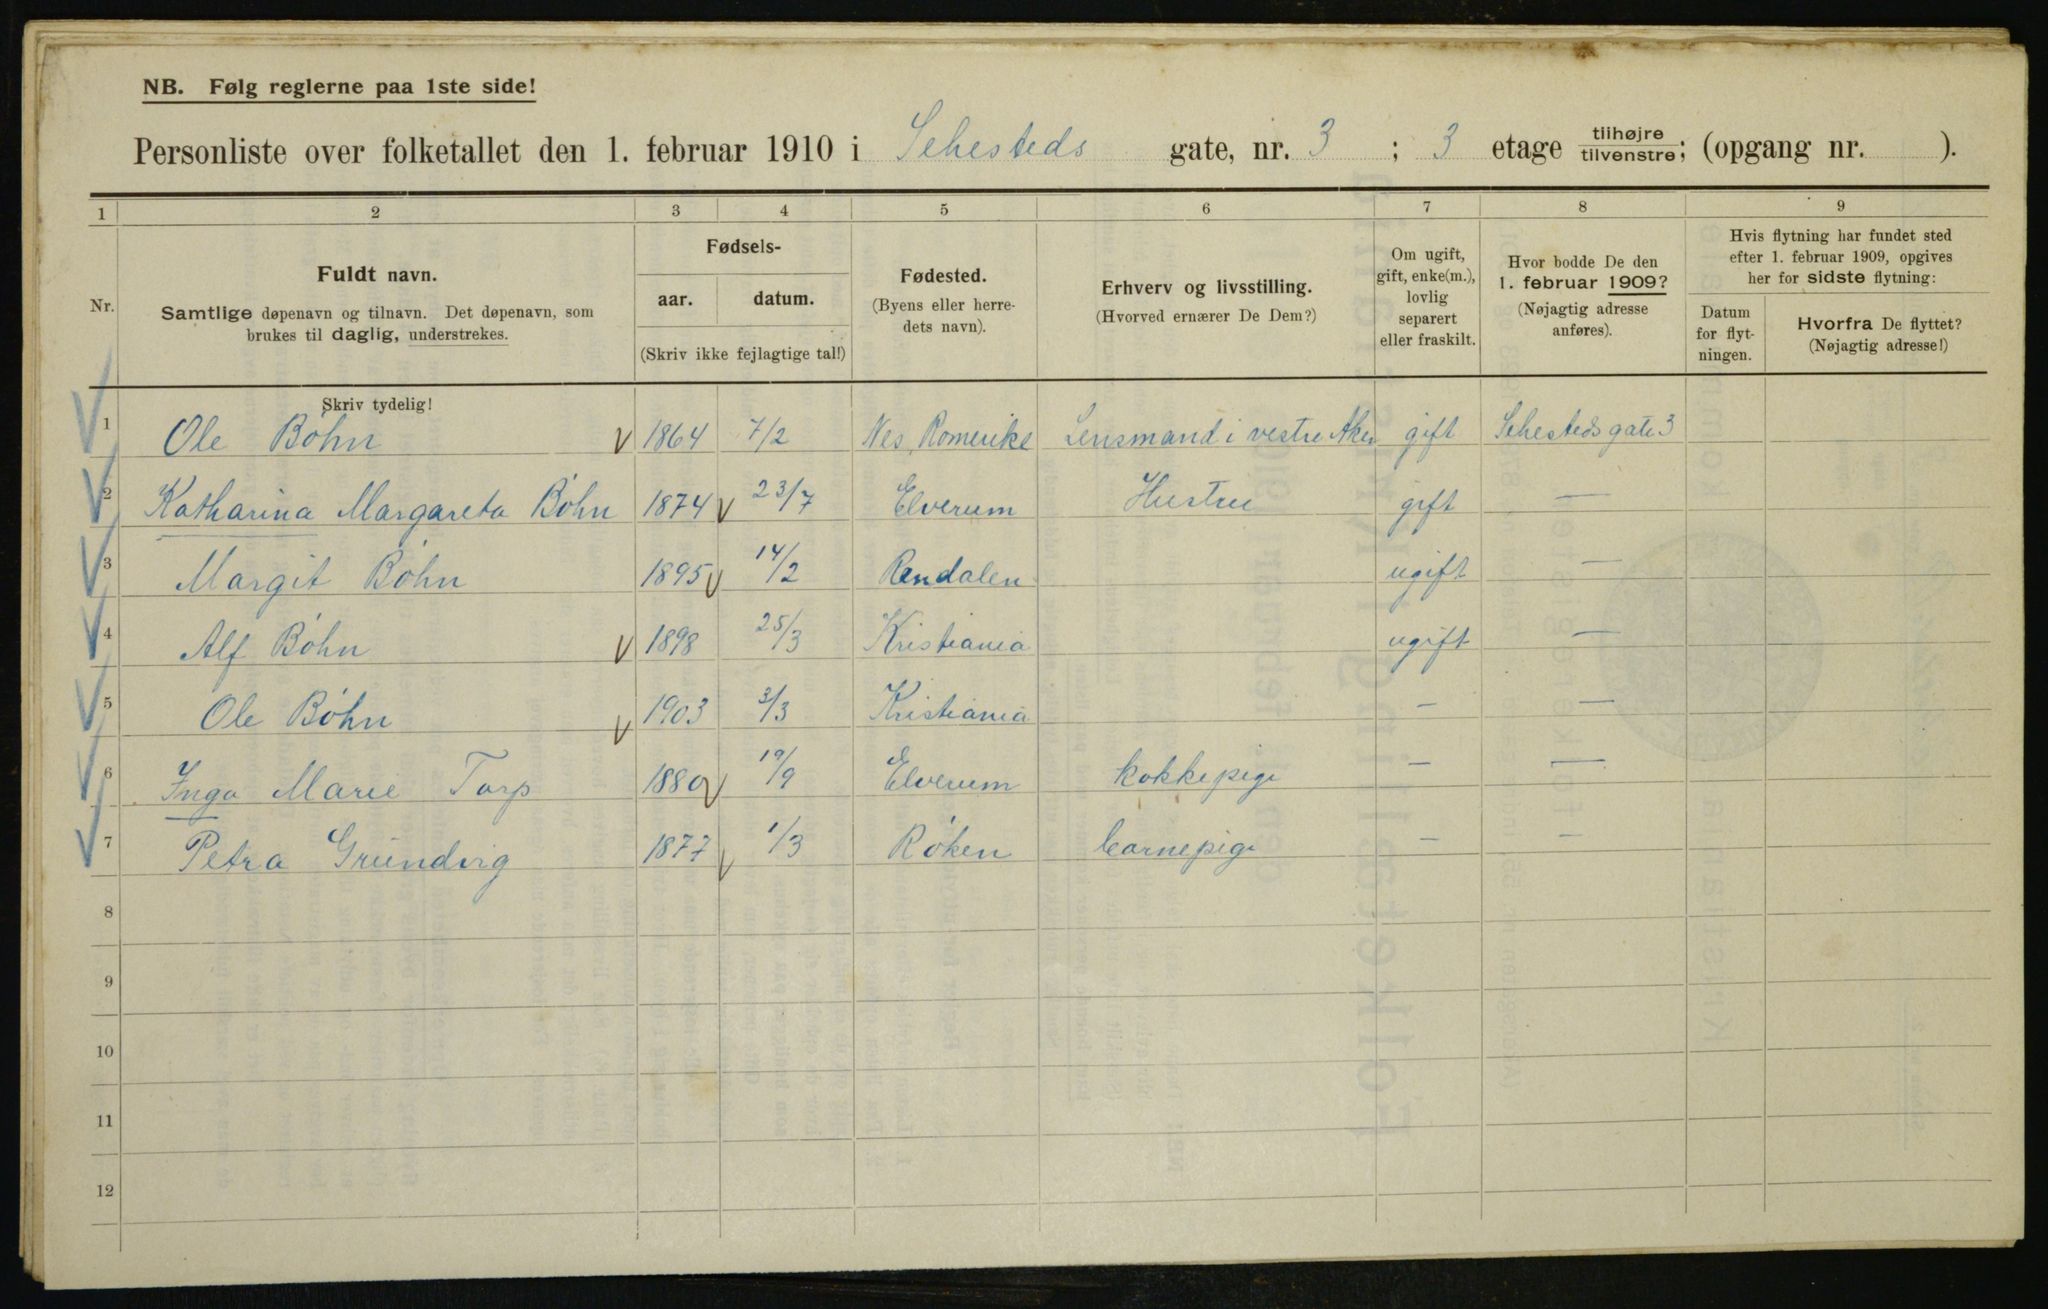 NB. Følg reglerne paa 1ste side!
Personliste over folketallet den 1. februar 1910 i Sehesteds gate, nr. 3 ; 3 etage tilhøjre/tilvenstre; (opgang nr. ).
1 2 3 4 5 6 7 8 9
Nr.
Fuldt navn.
Samtlige døpenavn og tilnavn. Det døpenavn, som
brukes til daglig, understrekes.
Fødsels-
aar. datum.
(Skriv ikke fejlagtige tal!)
Fødested.
(Byens eller herre-
dets navn).
Erhverv og livsstilling.
(Hvorved ernærer De Dem?)
Om ugift,
gift, enke(m.),
lovlig
separert
eller fraskilt.
Hvor bodde De den
1. februar 1909?
(Nøjagtig adresse
anføres).
Hvis flytning har fundet sted
efter 1. februar 1909, opgives
her for sidste flytning:
Datum
for flyt-
ningen.
Hvorfra De flyttet?
(Nøjagtig adresse!)
Skriv tydelig!
1 Ole Bøhn 1864 7/2 Nes, Romerike Lensmand i vestre Aker gift Sehesteds gate 3
2 Katharina Margareta Bøhn 1874 23/7 Elverum Hustru gift —
3 Margit Bøhn 1895 14/2 Rendalen ugift —
4 Alf Bøhn 1898 25/3 Kristiania ugift —
5 Ole Bøhn 1903 3/3 Kristiania — —
6 Inga Marie Torp 1880 19/9 Elverum kokkepige — —
7 Petra Grundvig 1877 1/3 Røken barnepige — —
8
9
10
11
12